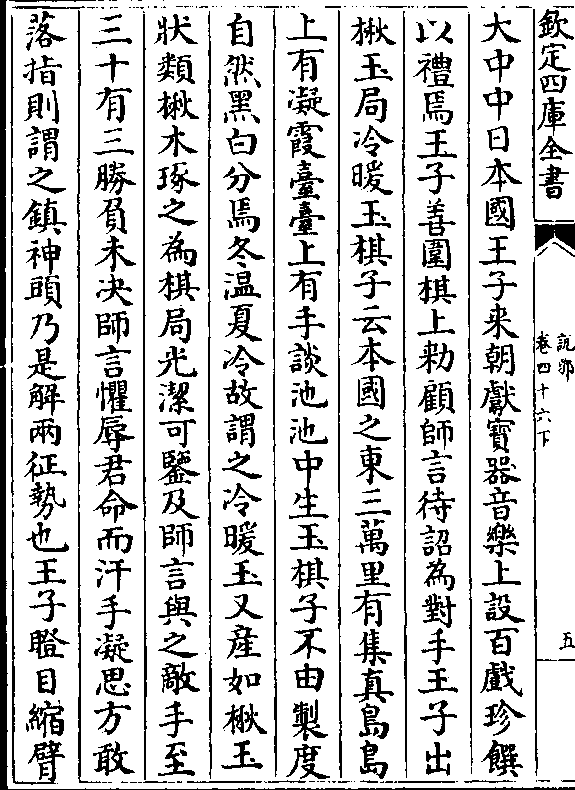 欽定四庫全書
說郛
卷四十六下
五
大中中日本國王子来朝獻寶器音樂上設百戲珍饌
以禮焉王子善圍棋上勑顧師言待詔為對手王子出
楸玉局冷暖玉棋子云本國之東三萬里有集真島島
上有凝霞臺臺上有手談池池中生玉棋子不由製度
自然黑白分焉冬温夏冷故謂之冷暖玉又産如楸玉
狀類楸木琢之為棋局光潔可鑒及師言與之敵手至
三十有三勝負未决師言懼辱君命而汗手凝思方敢
落指則謂之鎮神頭乃是解兩征勢也王子瞪目縮臂